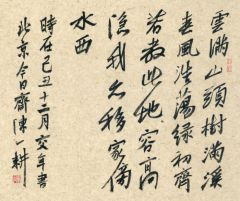 雲滿山頭樹滿溪
春風蕩綠初齊
若教此地容高
隱我移家傍
水西
時在己丑十二月交年書
北京今日齋陳一耕